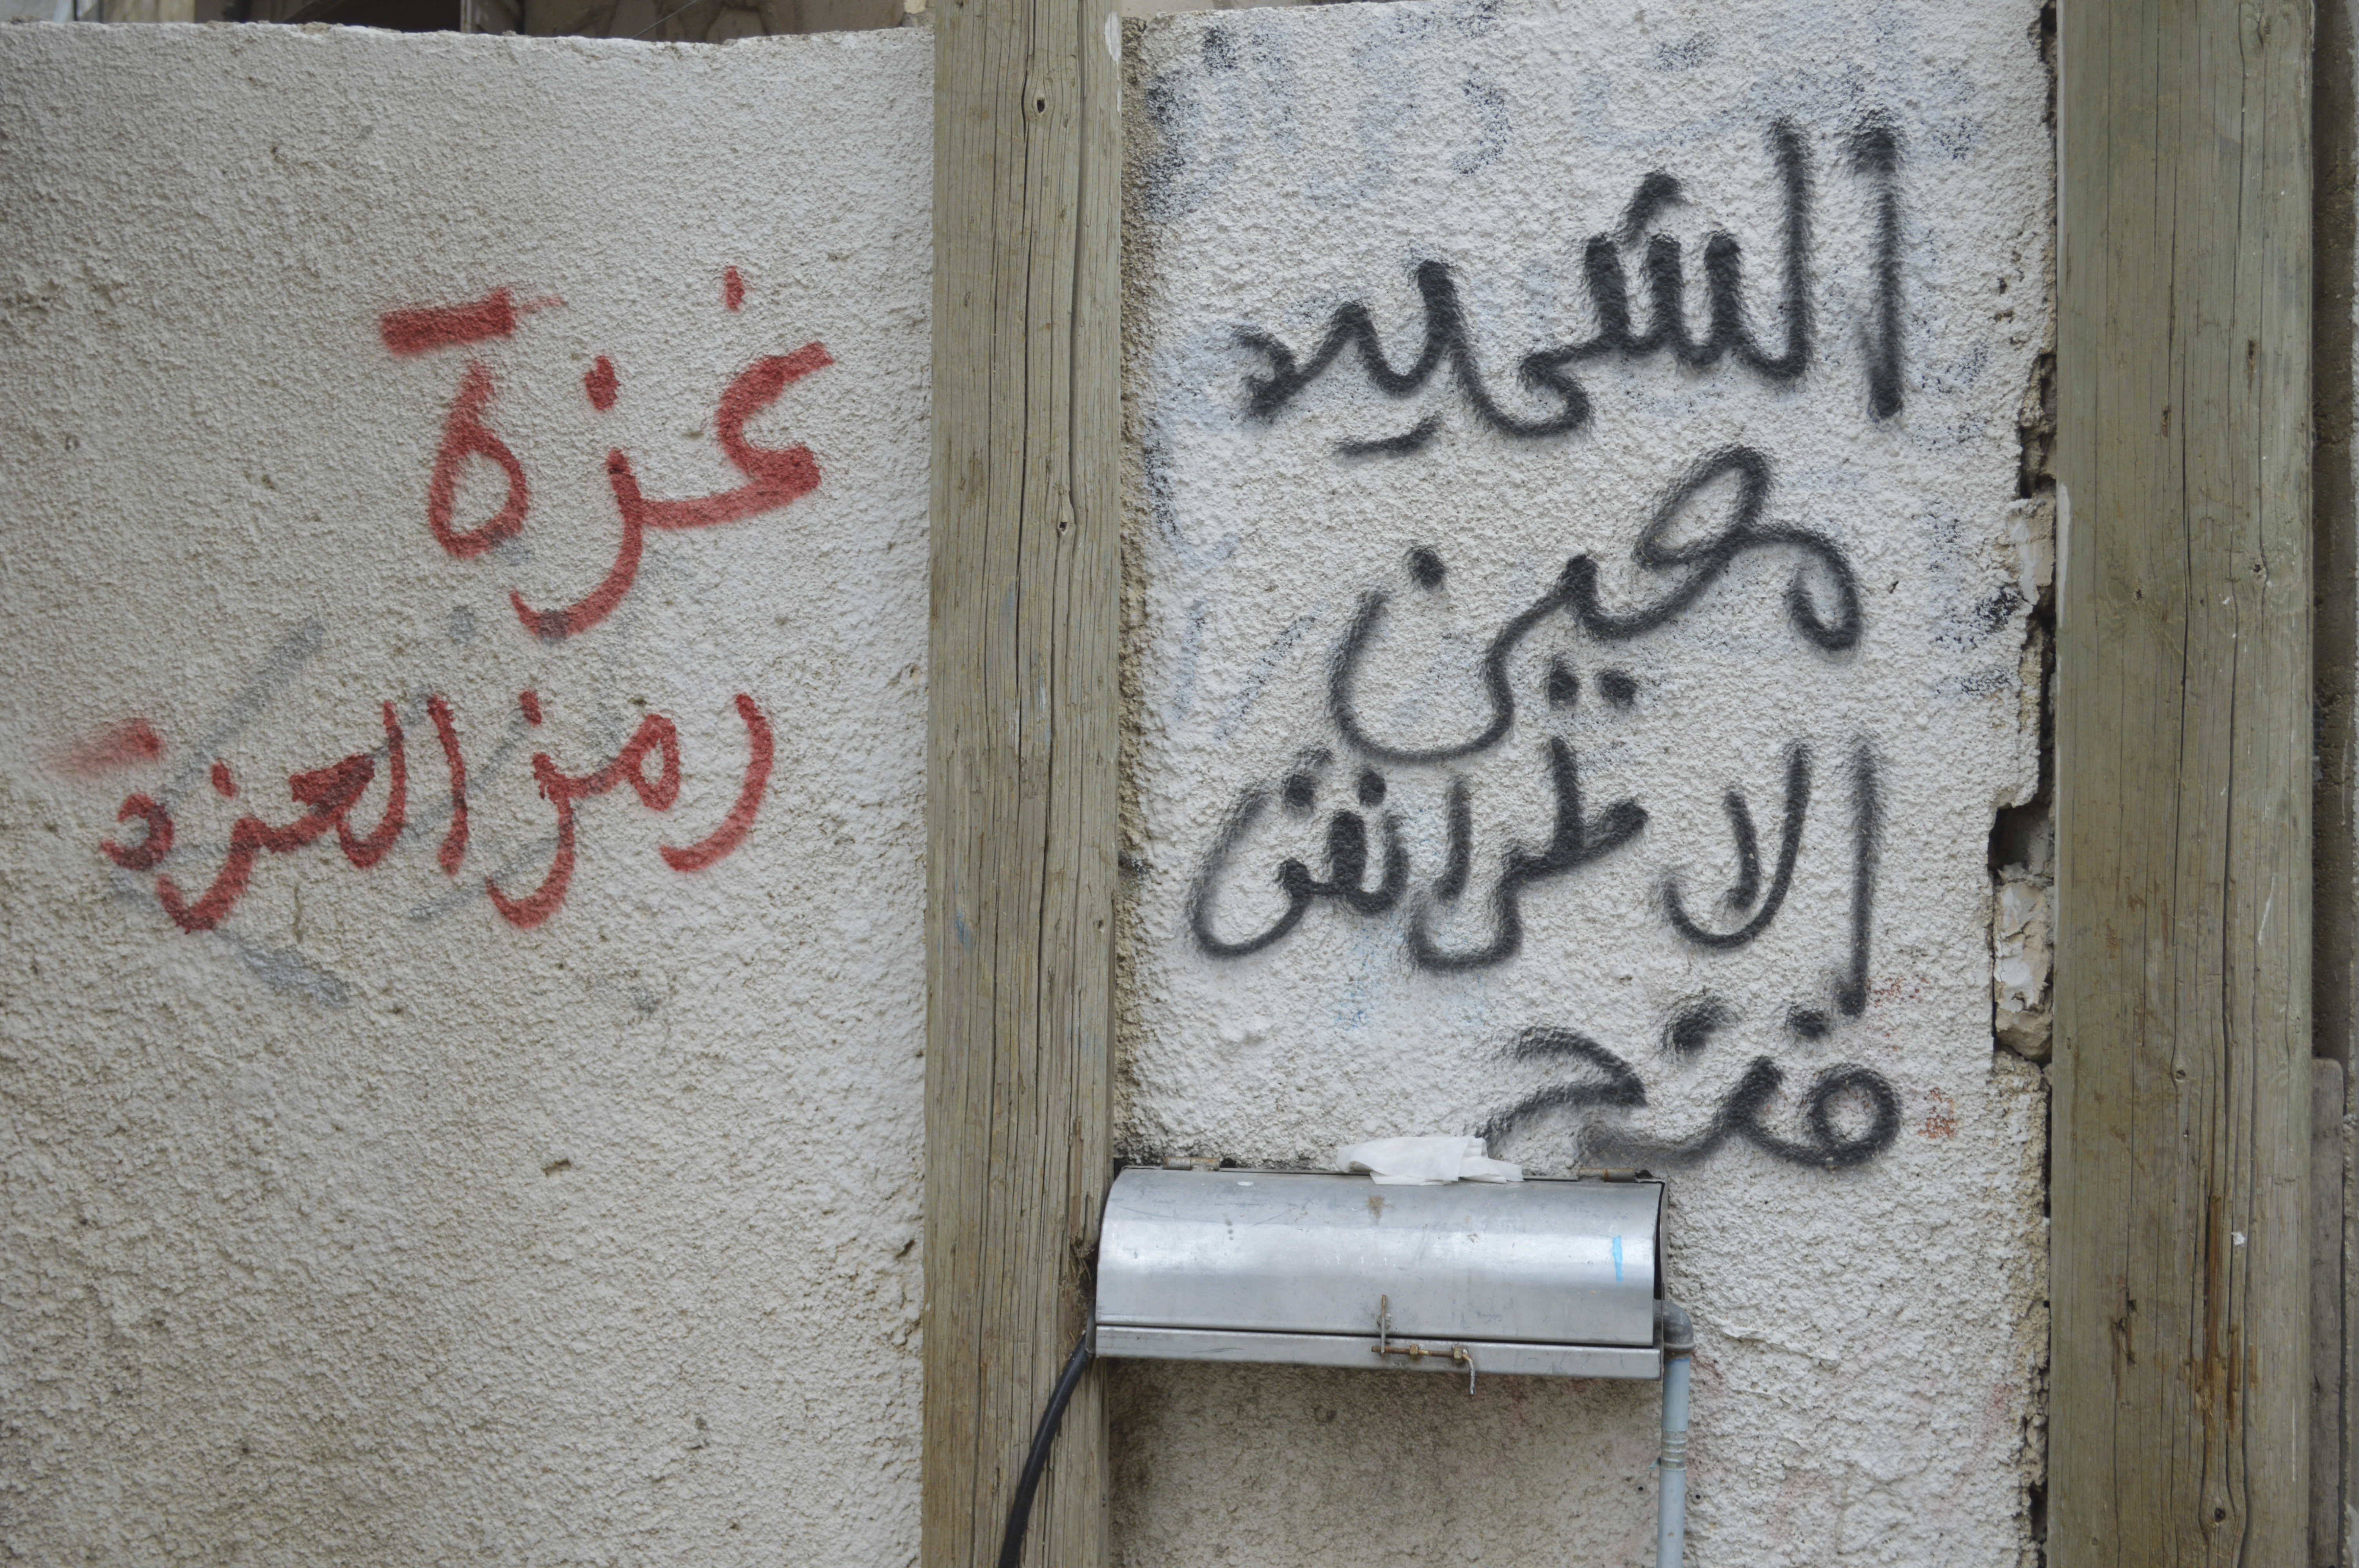 الشهيد
معين
الاطرش
فتح
غزة
رمز العزة